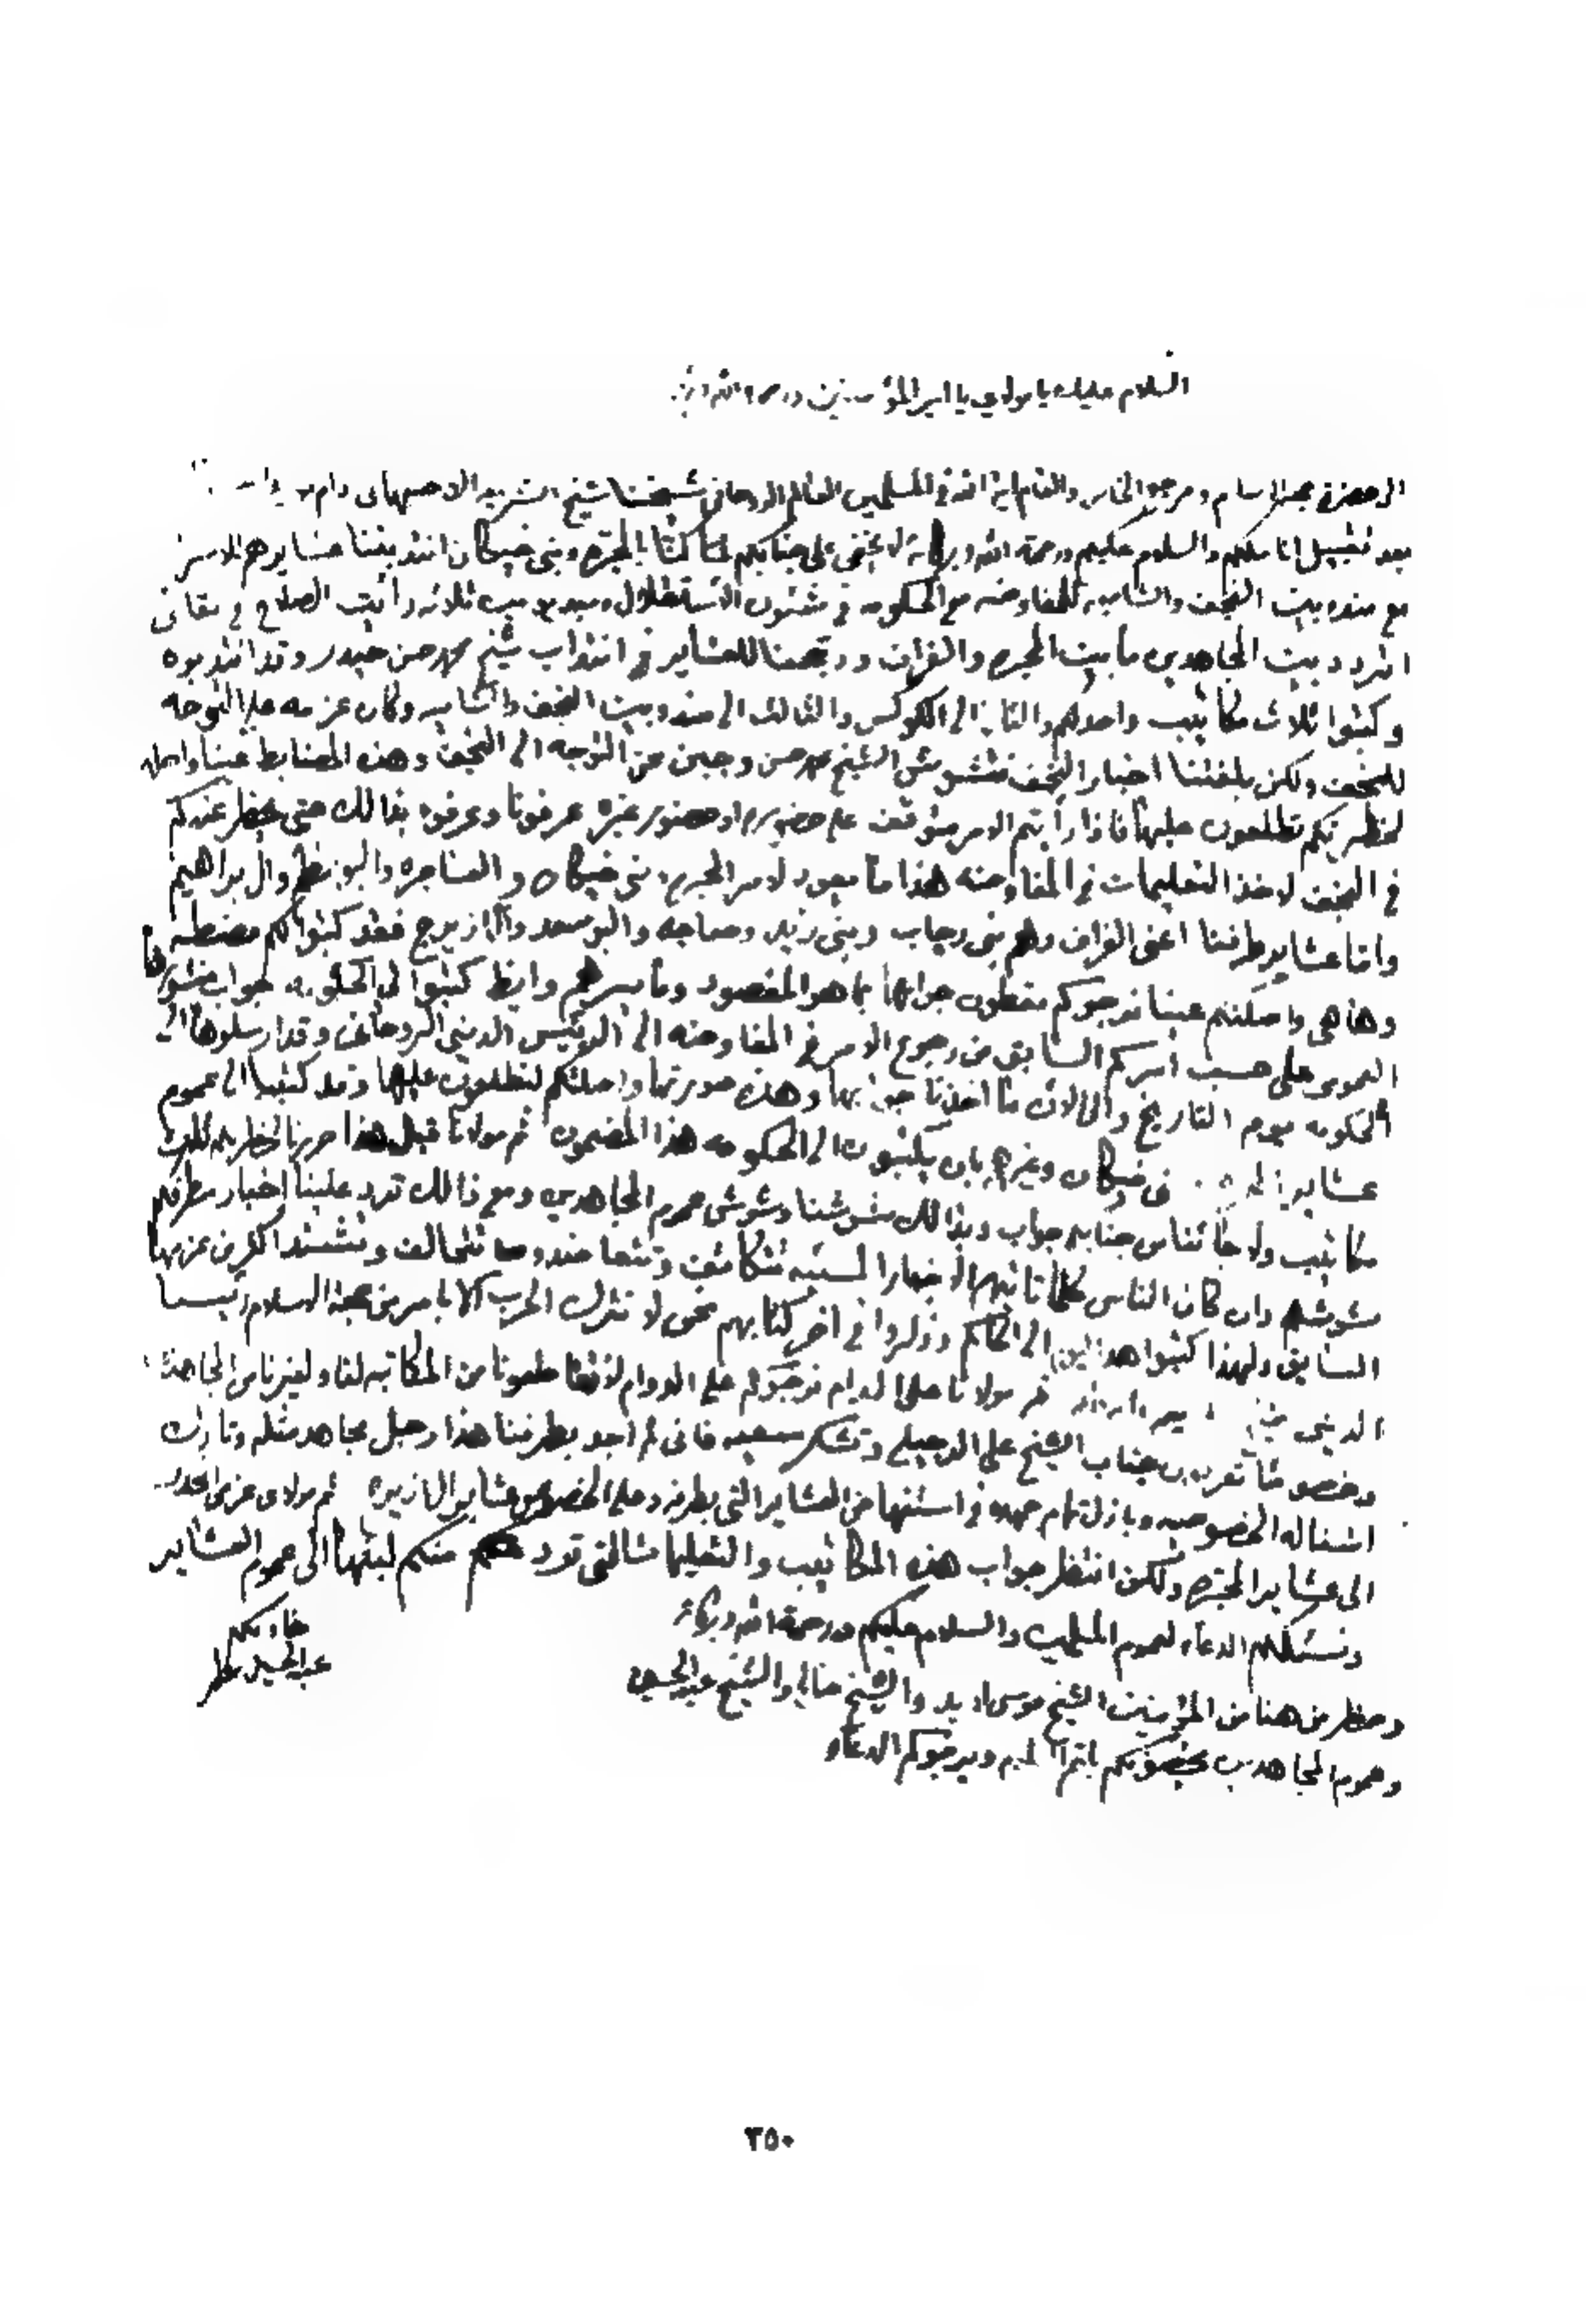 السلام عليك يا مولاي يا امير المؤمنين ورحمة الله
الى حضرة حجة الاسلام ومرجع الخاص والعام اية الله في المسلمين العالم الروحاني شيخنا شيخ الشريعه الاصبهاني دام
بعد تقبيل اناملكم والسلام عليكم ورحمة الله وبركاته لا يخفى على جنابكم لما كنا بالمجره وبني خيكان انتدبتنا عشايرهم
مع مندوبين النجف والشاميه للمفاوضه مع الحكومه في شئون الاستقلال وبعد يومين ثلاثه رأيت الصلاح في بقائي
اتردد بين المجاهدين ما بين المجره والغراف ورجحنا للعشاير في انتداب شيخ محمد حسن حيدر وقد انتدبوه
وكتبوا ثلاث مكاتيب واحد لهم والثاني الى الكوكس والثالث الى مندوبين النجف والشاميه وكان عزمه على التوجه
للنجف ولكن بلغتنا اخبار النجف فتشوش الشيخ محمد حسن وجبن عن التوجه الى النجف وهذه المضابط عينا واصله
لحظرتكم تطلعون عليها فاذا رأيتم الامر متوقف على حضوره او حضور غيره عرفونا وعرفوه بذالك حتى يحظر عندكم
في النجف لاخذ التعليمات في المفاوضه هذا ما يعود لامر المجره وبني خيكان والعساجره والبو شظر وال براهيم
واما عشاير طرفنا اعني الغراف وهم بني ركاب وبني زيد وصاجه والبو سعد والازيرج فقد كتبوا لكم مضبطه
وها هي واصلتكم عينا نرجوكم تعطون جوابها بما هو المقصود وما يسرهم وايظ كتبوا الى الحكومه جواب
العمومي على حسب امركم السابق من رجوع الامر في المفاوضه الى الرئيس الديني الروحاني وقد ارسلوها الى
الحكومه يوم التاريخ والى الان ما اخذنا جوابها وهذه صورتها واصلتكم لتطلعون عليها وقد كتبنا الى عموم
عشاير المجره بني خيكان وغيرهم بان يكتبون الى الحكومه هذا المضمون ثم مولانا قبل هذا حررنا لحظرتكم ثلاث
مكاتيب ولا جائنا من جنابكم جواب وبذالك تشوشنا وتشوش عموم المجاهدين ومع ذالك ترد علينا اخبار من طرفكم
مشوشه وان كان الناس كلما تاتيهم الاخبار السيئه تتكاتف وتتعاضد وتتحالف وتشتد اكثر من عزمها
السابق ولهذا كتبوا هذا الى الحاكم وذكروا في اخر كتابهم نحن لا نترك الحرب الا بامر من حجة الاسلام رئيسنا
الديني شيخ الشريعه دام ظله ثم مولانا على الدوام نرجوكم على الدوام لا تقاطعونا من المكاتبه لنا ولغيرنا من المجاهدين
وخصوصا تعريف جناب الشيخ علي الدجيلي وتشكر سعيه فاني لم اجد بطرفنا هذا رجل مجاهد مثله وتارك
اشغاله الخصوصيه وباذل تمام جهده في استنهاض العشاير التي بطرفه وعلى الخصوص عشاير الازيرج ثم مولاي عزمي انحدر
الى عشاير المجره ولكن انتظر جواب هذه المكاتيب والتعليمات التي ترد منكم لبثها الى عموم العشاير
ونسئلكم الدعاء لعموم المسلمين والسلام عليكم ورحمة الله وبركاته
خادمكم
عبد الحسين مطر
وحظر من هنا من المؤمنين الشيخ موسى والشيخ والشيخ عبد الحسين
وعموم المجاهدين يخصونكم باتم السلام ويرجوكم الدعاء
٢٥٠